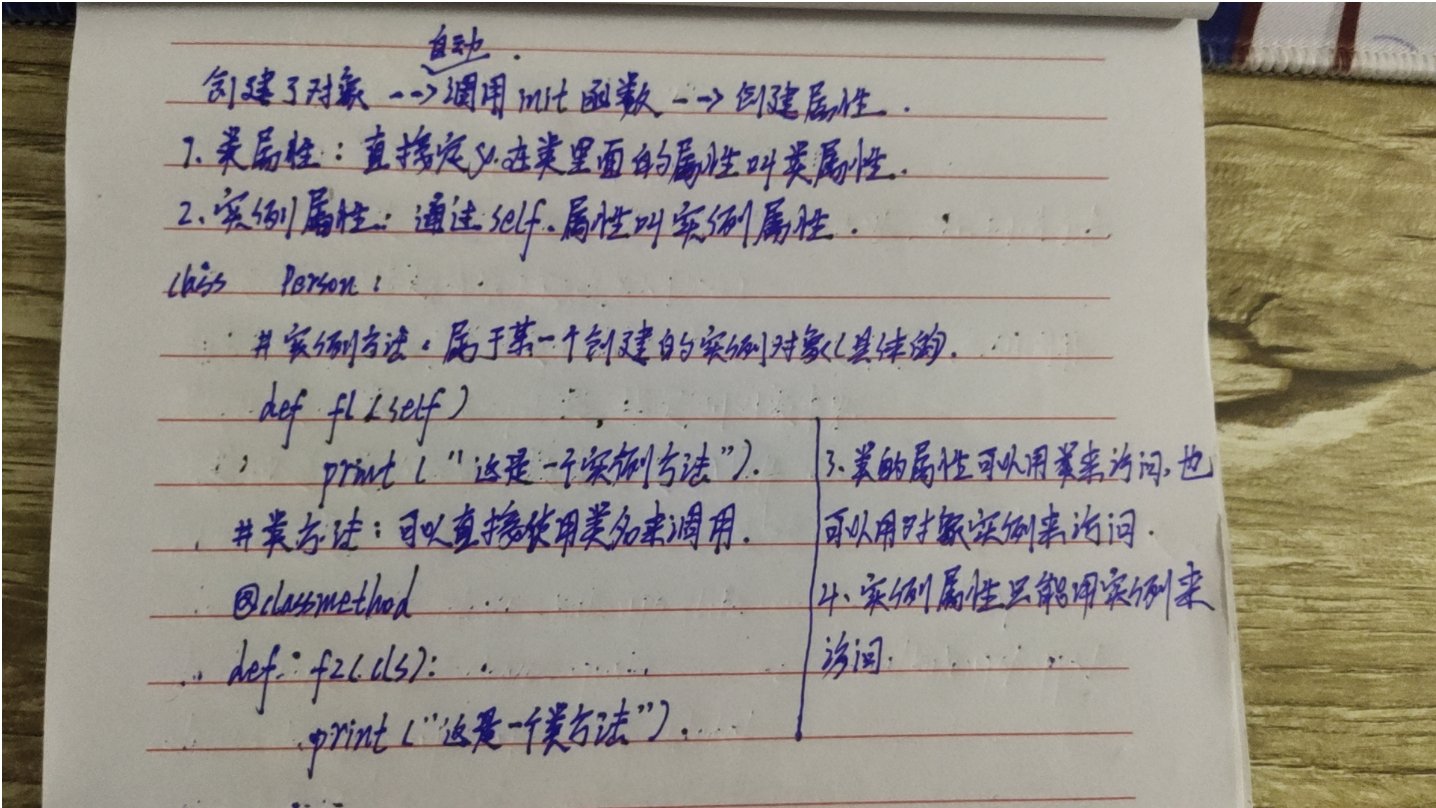 自动.
创建了对象 --> 调用init函数 --> 创建属性.
1. 类属性: 直接定义在类里面的属性叫类属性.
2. 实例属性: 通过self.属性叫实例属性.
class Person:
#实例方法: 属于某一个创建的实例对象(具体的).
def f1(self)
print("这是一个实例方法").
#类方法: 可以直接使用类名来调用.
@classmethod
def f2(cls):
print("这是一个类方法").
3、类的属性可以用类来访问,也
可以用对象实例来访问.
4、实例属性只能用实例来
访问.